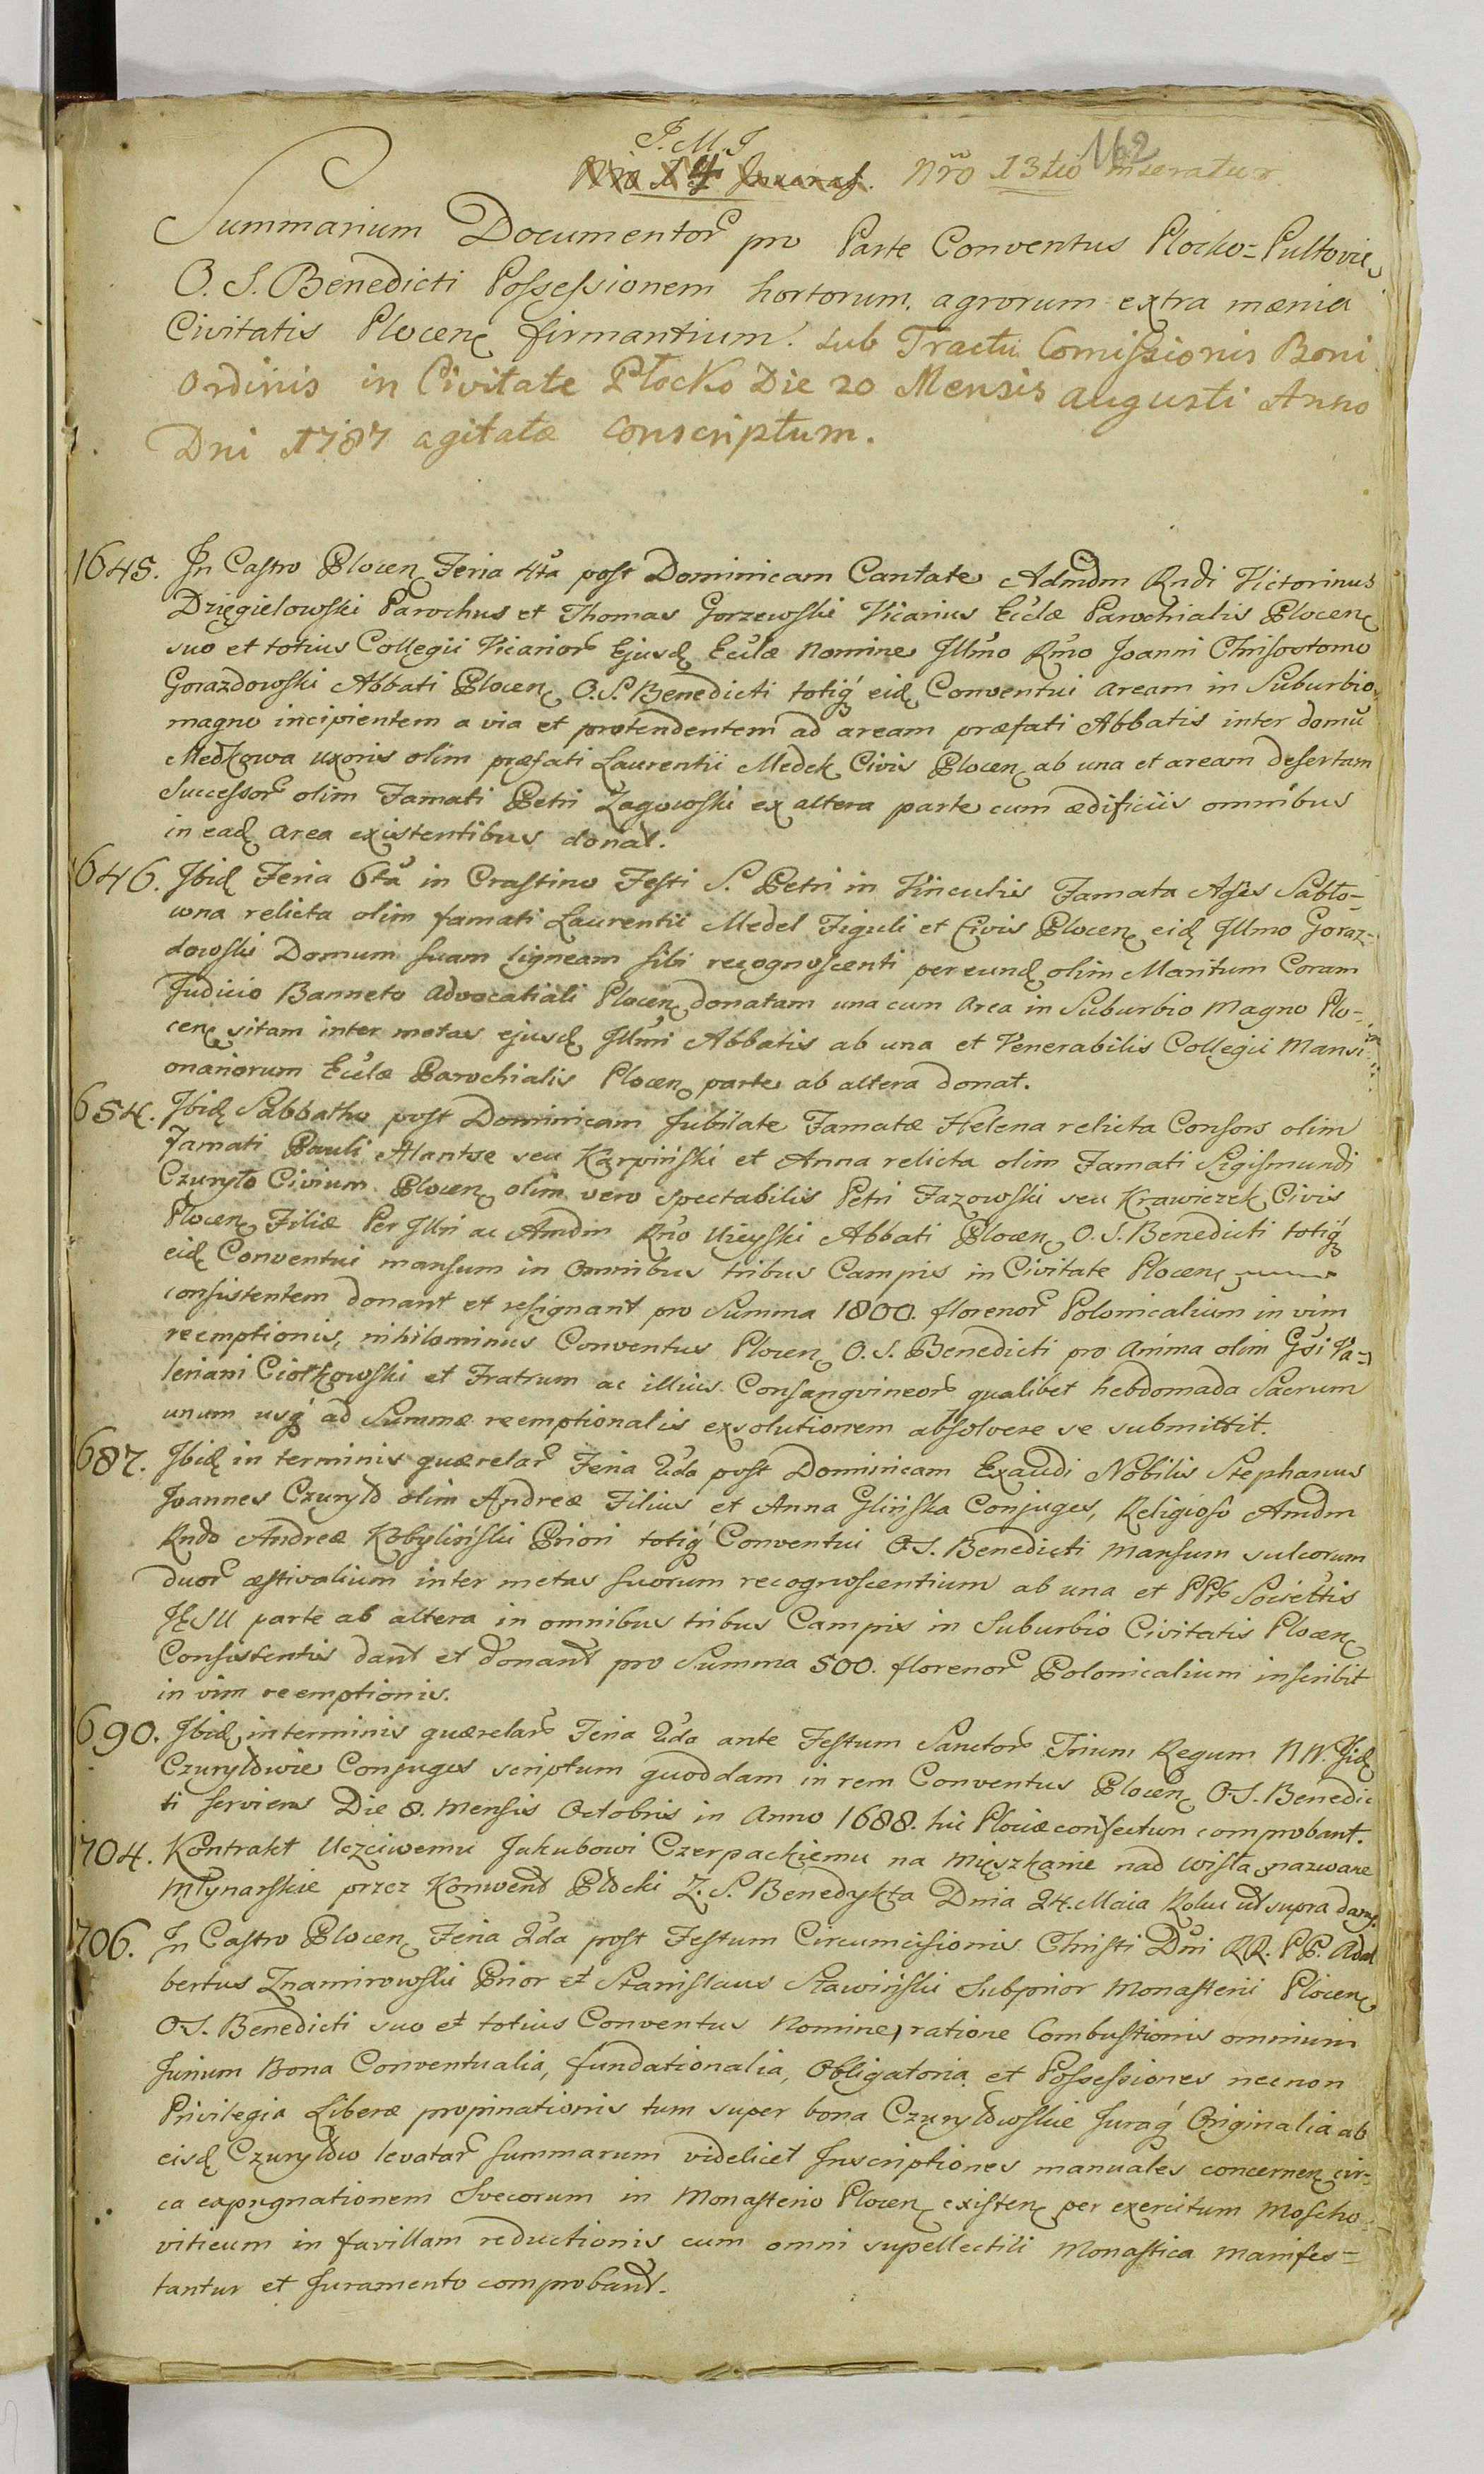 J. M. J
Nro 14 Nro 13tio inseratur 162
Summarium Documentor pro Parte Conventus Plocko=Pultovien
O. S. Benedicti Possessionem hortorum, agrorum extra mænia
Civitatis Plocen firmantium. sub Tractu Comissionis Boni
Ordinis in Civitate Płocko Die 20 Mensis augusti Anno
Dni 1787 agitatæ conscriptum.
1645. In Castro Plocen Feria 4ta post Dominicam Cantate Admdm Rndi Victorinus
Dzięgielowski Parochus et Thomas Gorzewski Vicarius Eclæ Parochialis Plocen
suo et totius Collegii Vicarior Ejusd Eclæ Nomine Illmo Rmo Joanni Chrisostomo
Gorazdowski Abbati Plocen O. S. Benedicti totiq eid Conventui aream in Suburbio
magno incipientem a via et protendentem ad aream præfati Abbatis inter domu
Medkowa uxoris olim præfati Laurentii Medek Civis Plocen ab una et aream desertam
Successor olim Famati Petri Zagowski ex altera parte cum ædificiis omnibus
in ead area existentibus donat.
646. Ibid Feria 6ta in Crastino Festi S. Petri in Vinculis Famata Agnes Sabło-
wna relicta olim famati Laurentii Medel Figuli et Civis Plocen eid Illmo Goraz-
dowski Domum suam ligneam sibi recognoscenti per eund olim Maritum Coram
Judicio Banneto Advocatiali Plocen donatam una cum Area in Suburbio Magno Plo-
cen sitam inter metas ejusd Illmi Abbatis ab una et Venerabilis Collegii Mansi
onariorum Eclæ Parochialis Plocen parte ab altera donat.
654. Ibid Sabbatho post Dominicam Jubilate Famatæ Helena relicta Consors olim
Famati Pauli Alantse seu Karpiński et Anna relicta olim Famati Sigismundi
Czuryło Civium Plocen olim vero spectabilis Petri Fazowski seu Krawiczek Civis
Plocen Filiæ Per Illri ac Amdm Rno Uieyski Abbati Plocen O. S. Benedicti totiq
eid Conventui mansum in Omnibus tribus Campis in Civitate Plocen
consistentem donant et resignant pro Summa 1800. florenor Polonicalium in vim
reemptionis, nihilominus Conventus Plocen O. S. Benedicti pro Anima olim Gsi Va-
leriani Ciołkowski et Fratrum ac illius Consangvineor qualibet hebdomada Sacrum
unum usq ad Summæ reemptionalis exsolutionem absolvere se submittit.
687. Ibid in terminis quærelar Feria 2da post Dominicam Exaudi Nobilis Stephanus
Joannes Czuryło olim Andreæ Filius et Anna Glińska Conjuges, Religioso Amdm
Rndo Andreæ Kobyliński Priori totiq Conventui O. S. Benedicti Mansum sulcorum
duor æstivalium inter metas suorum recognoscentium ab una et PPr Societtis
JESU parte ab altera in omnibus tribus Campis in Suburbio Civitatis Plocen
Consistentis dant et donant pro Summa 500. florenor Polonicalium inscribit
in vim reemptionis.
690. Ibid in terminis quærelar Feria 2da ante Festum Sanctor Trium Regum NN. Iid
Czuryłowie Conjuges scriptum quoddam in rem Conventus Plocen O. S. Benedic
ti serviens Die 8. Mensis Octobris in Anno 1688. hic Plociæ confectum comprobant.
1704. Kontrakt Uczciwemu Jakubowi Czerpackiemu na Mięszkanie nad Wisłą nazwane
Młynarskie przez Konwent Płocki Z. S. Benedykta Dnia 24. Maia Roku ut supra dany.
706. In Castro Plocen Feria 2da post Festum Circumcisionis Christi Dni RR. PP. Adal
bertus Znamirowski Prior et Stanislaus Sławiński Subprior Monasterii Plocen
O. S. Benedicti suo et totius Conventus Nomine, ratione Combustionis omnium
Jurium Bona Conventualia, fundationalia, Obligatoria et Possessiones necnon
Privilegia Liberæ propinationis tum super bona Czuryłowskie Juraq Originalia ab
eisd Czuryłow levatar summarum videlicet Inscriptiones manuales concernen cir-
ca expugnationem Svecorum in Monasterio Plocen existen per exercitum Moscho-
viticum in favillam reductionis cum omni supellectili Monastica manifes-
tantur et Juramento comprobant.